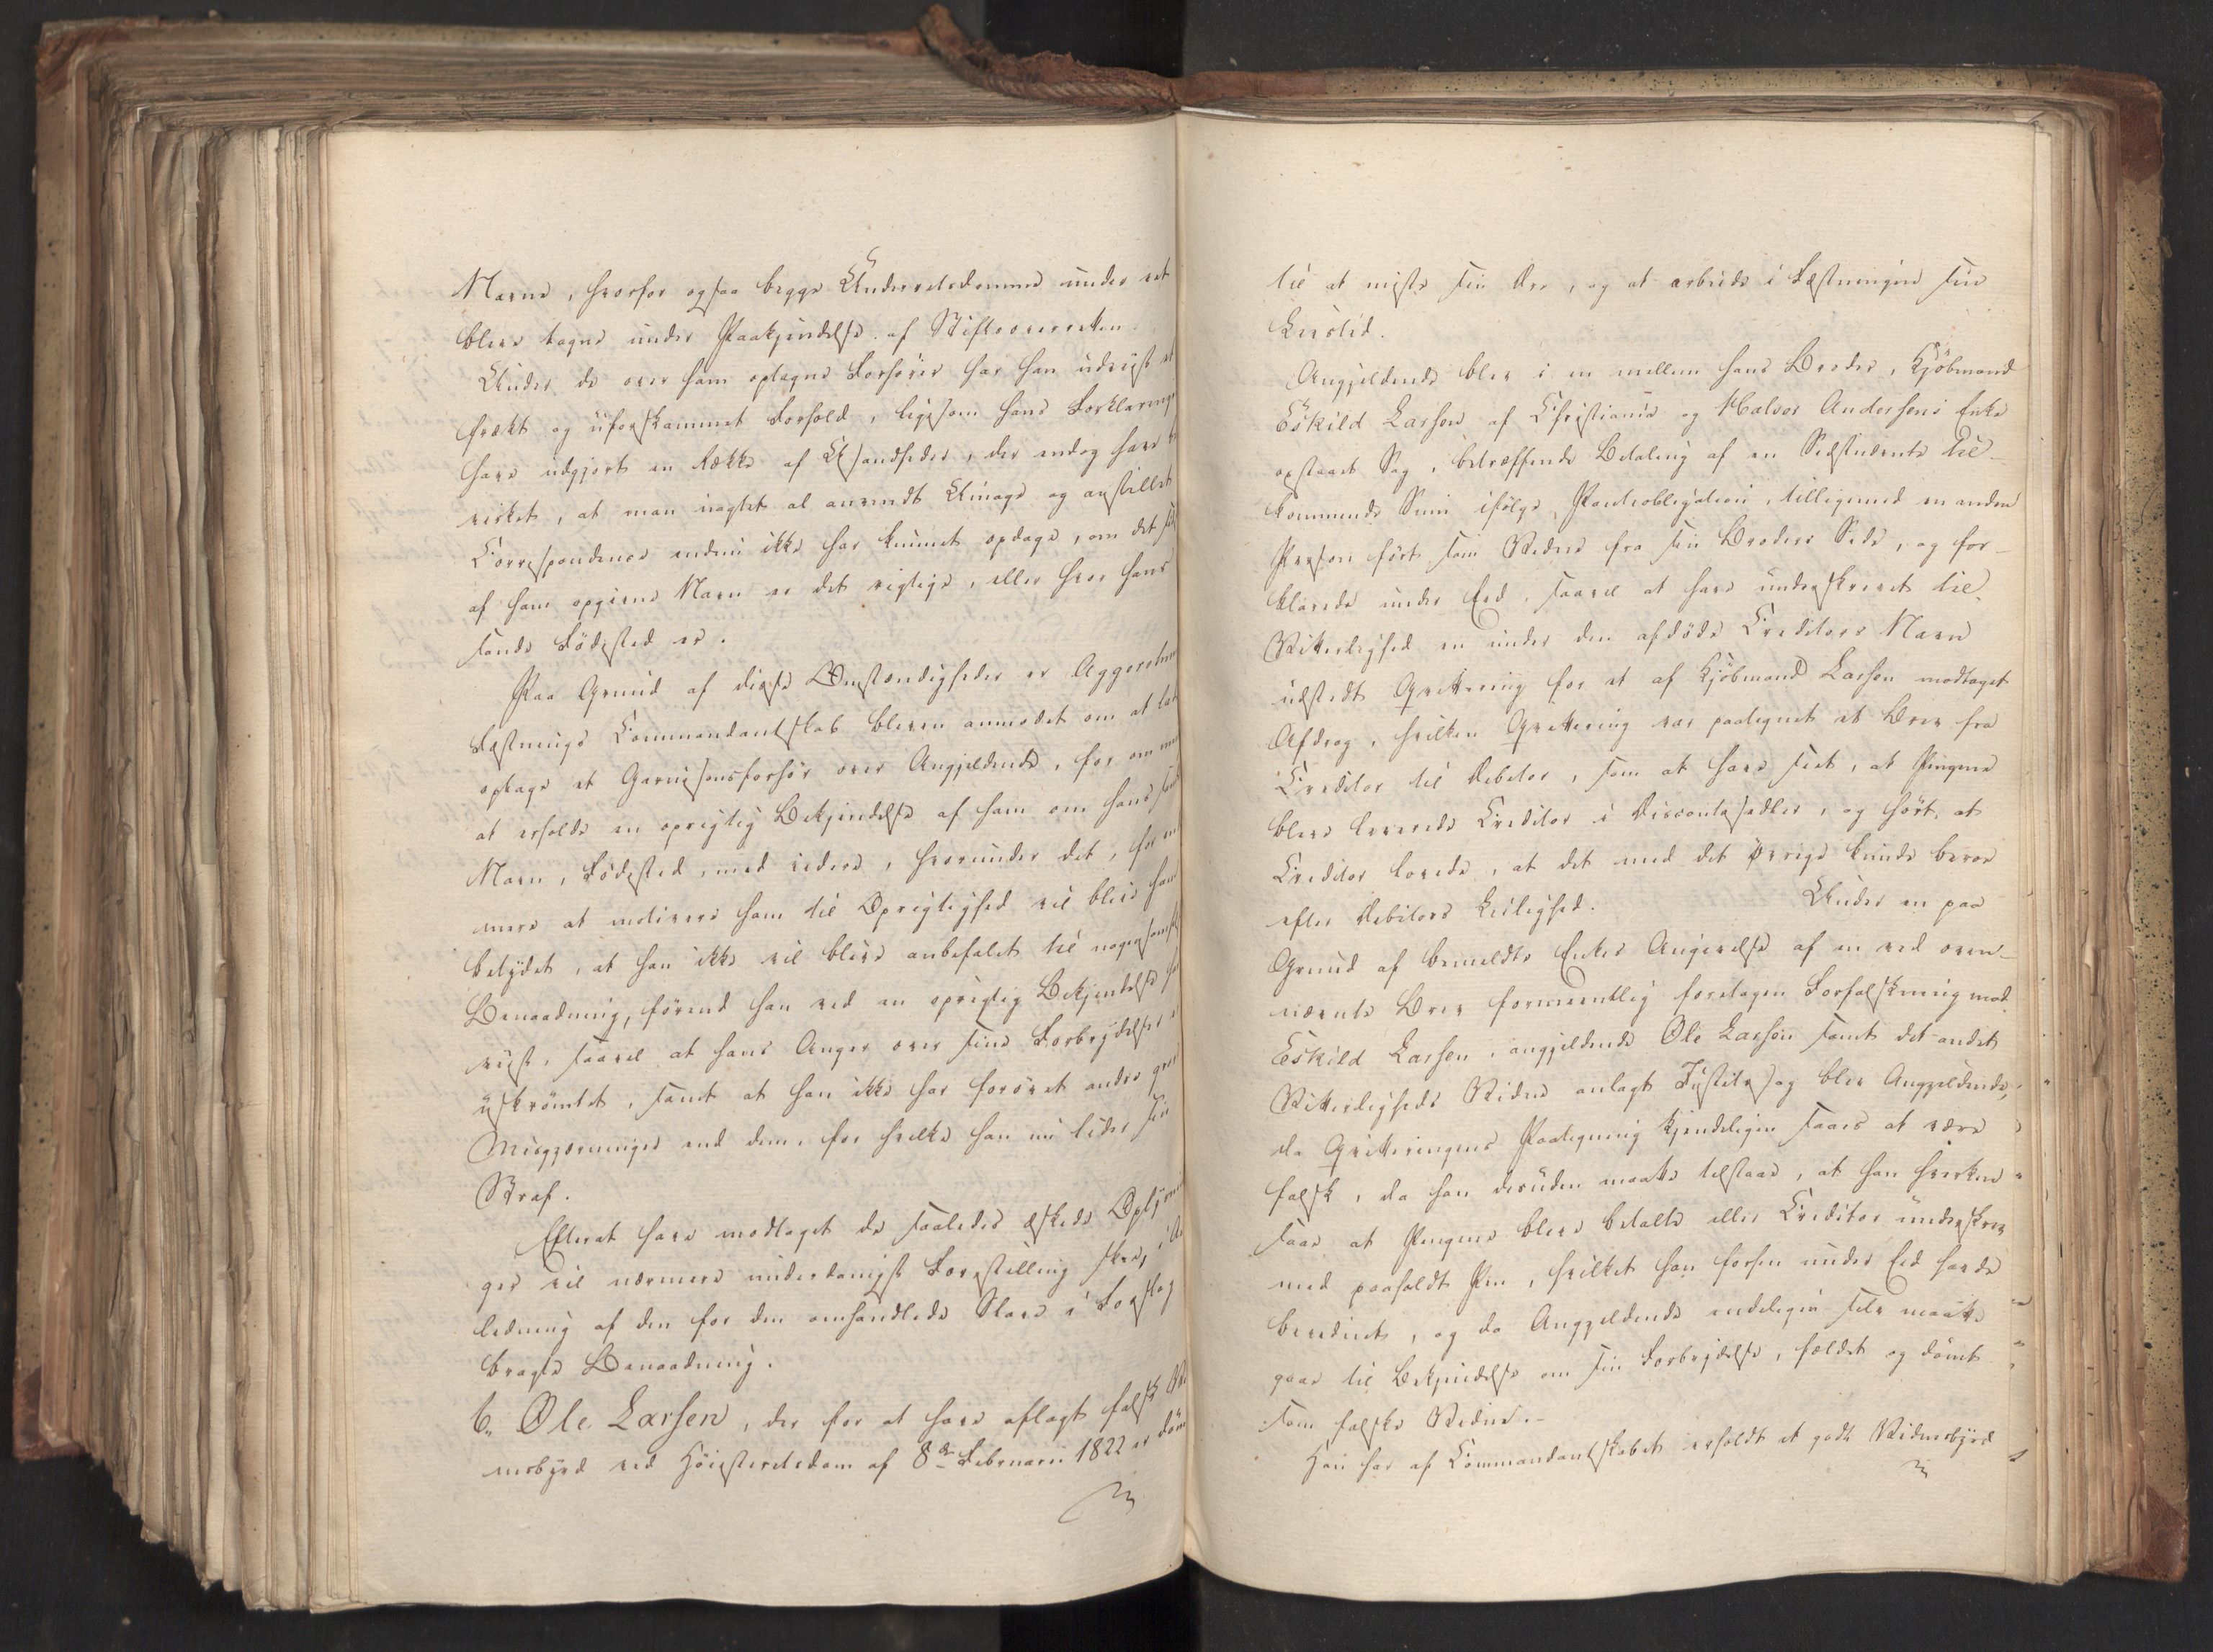 Navne, hvorfor ogsaa begge Underretsdomme under eet
bleve tagne under Paakjendelse af Stiftsoverretten.
Under de over ham optagne Forhører har han udviist et
frækt og uforskammet Forhold, ligesom hans Forklaringe
have udgjort en Række af Usandheder, der endog have be
virket, at man uagtet al anvendt Umage og anstillet
Correspondence endnu ikke har kunnet opdage, om det sidst
af ham opgivne Navn er det rigtige, eller hvor hans
sande Fødested er.
Paa Grund af disse Omstændigheder er Aggershuus
Fæstnings Commandantskab bleven anmodet om at lade
optage et Garnisonsforhør over Angjeldende, for om mu
at erholde en oprigtig Bekjendelse af ham om hans sande
Navn, Fødested, med videre, hvorunder det, for end
mere at motivere ham til Oprigtighed vil blive ham
betydet, at han ikke vil blive anbefalet til nogensomhe
Benaadning, førend han ved en oprigtig Bekjendelse har
viist, saavel at hans Anger over sine Forbrydelser er
uskrømtet, samt at han ikke har forøvet andre grove
Misgjerninger end dem, for hvilke han nu lider sin
Straf.
Efterat have modtaget de saaledes æskede Oplysnin
ger vil nærmere underdanigst Forestilling skee, i An
ledning af den for den omhandlede Slave i Forslag
bragte Benaadning.
6. Ole Larsen, der for at have aflagt falsk Vid
nesbyrd ved Høiesteretsdom af 8de Februarii 1822 er dømt
til at miste sin Ære, og at arbeide i Fæstningen sin
Livstid.
Angjeldende blev i en mellem hans Broder, Kjøbmand
Eskild Larsen af Christiania og Halvor Andersens Enke
opstaaet Sag, betræffende Betaling af en Sidstnævnte til-
kommende Sum ifølge Panteobligation, tilligemed en anden
Person ført som Vidne fra sin Broders Side, og for-
klarede under Eed, saavel at have underskrevet til
Vitterlighed en under den afdøde Creditors Navn
udstedt Qvittering for et af Kjøbmand Larsen modtaget
Afdrag, hvilken Qvittering var paategnet et Brev fra
Creditor til Debitor, som at have seet, at Pengene
bleve leverede Creditor i Discontosedler, og hørt, at
Creditor lovede, at det med det øvrige kunde beroe
efter Debitors Leilighed. Under en paa
Grund af bemeldte Enkes Angivelse af en ved oven-
nævnte Brev formeentlig foretagen Forfalskning mod
Eskild Larsen, angjeldende Ole Larsen samt det andet
Vitterligheds Vidne anlagt Justitssag blev Angjeldende,
da Qvitteringens Paategning kjendeligen saaes at være
falsk, da han desuden maatte tilstaae, at han hverken
saae at Pengene bleve betalte eller Creditor underskrev
med paaholdt Pen, hvilket han forhen under Eed havde
bevidnet, og da Angjeldende endeligen selv maatte
gaae til Bekjendelse om sin Forbrydelse, fældet og dømt
som falske Vidne.-
Han har af Commandantskabet erholdt et godt Vidnesbyrd